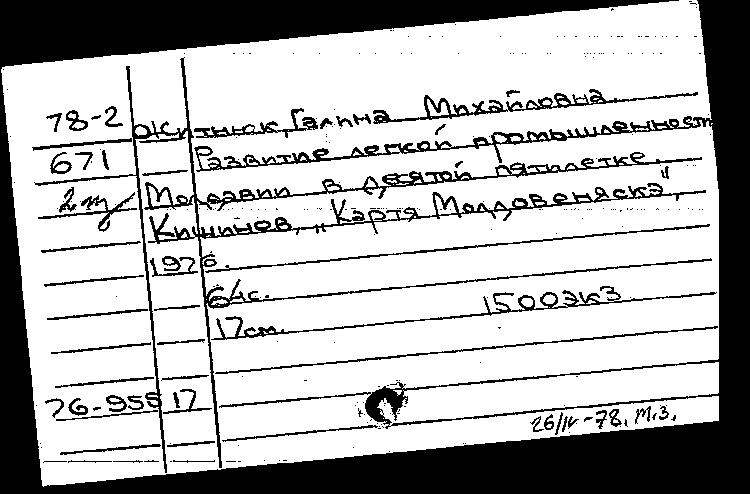 78-2 Житнюк, Галина Михайловна.
671 Развитие легкой промышленности
Молдавии в десятой пятилетке.
Кишинев, „Картя Молдовеняскэ",
1976.
64с.
17см. 1500экз
76-95517
26/IV-78. М.З.